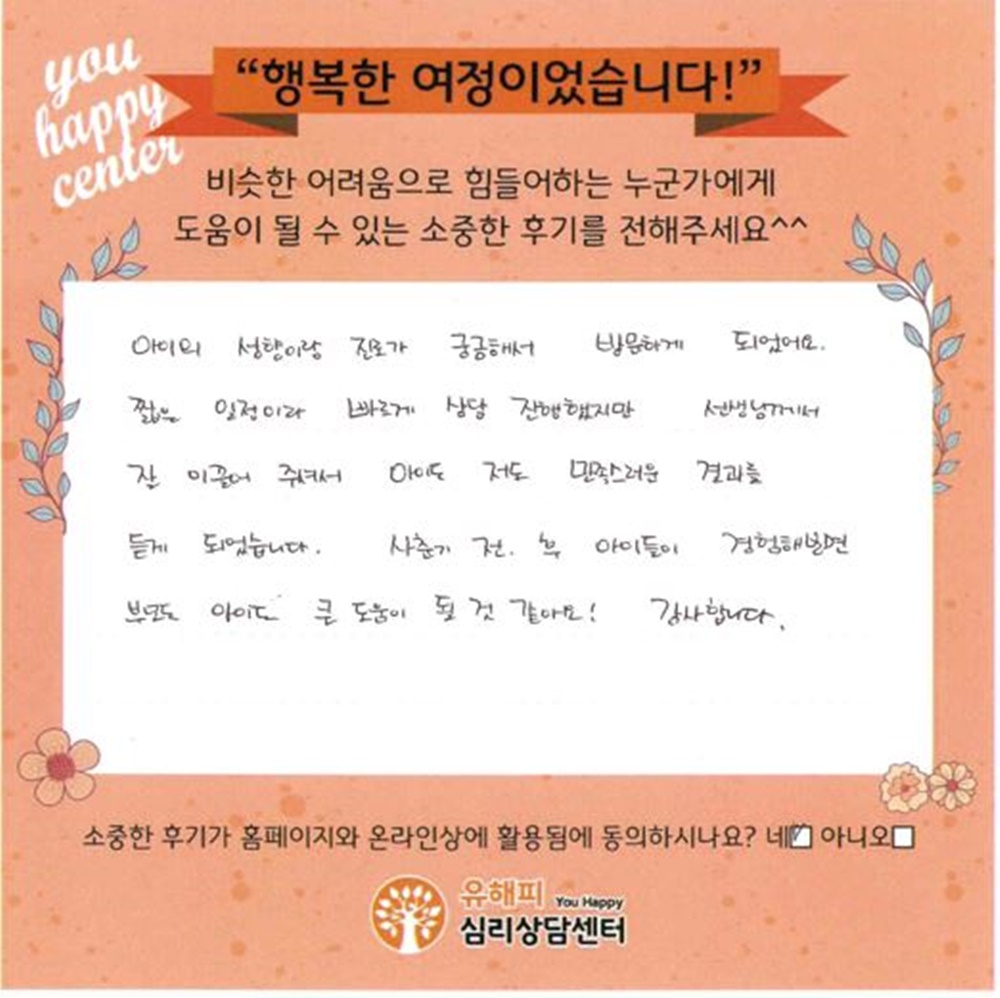 you
happy
center
“행복한 여정이었습니다!”
비슷한 어려움으로 힘들어하는 누군가에게
도움이 될 수 있는 소중한 후기를 전해주세요^^
아이의 성향이랑 진로가 궁금해서 방문하게 되었어요.
짧은 일정이라 빠르게 상담 진행했지만 선생님께서
잘 이끌어 주셔서 아이도 저도 만족스러운 결과를
듣게 되었습니다. 사춘기 전.후 아이들이 경험해보면
부모도 아이도 큰 도움이 될 것 같아요! 감사합니다.
소중한 후기가 홈페이지와 온라인상에 활용됨에 동의하시나요? 네☑ 아니오☐
유해피 You Happy
심리상담센터